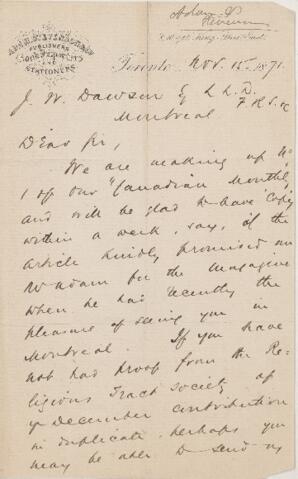 Adam &
Stevenson
ADAM, STEVENSON & Co
PUBLISHERS
BOOKSELLERS
AND
STATIONERS
Toronto Nov. 15. 1871.
J. W. Dawson Esq L.L.D.
F.R.S. &c
Montreal
Dear Sir,
We are making up No
1 of our "Canadian Monthly,"
and will be glad to have 'Copy'
within a week, say, of the
article kindly promised our
Mr Adam for the Magazine
when he had recently the
pleasure of seeing you in
Montreal. If you have
not had proof from the Re-
ligious Tract Society of
yr December contribution
in duplicate perhaps you
may be able to send us